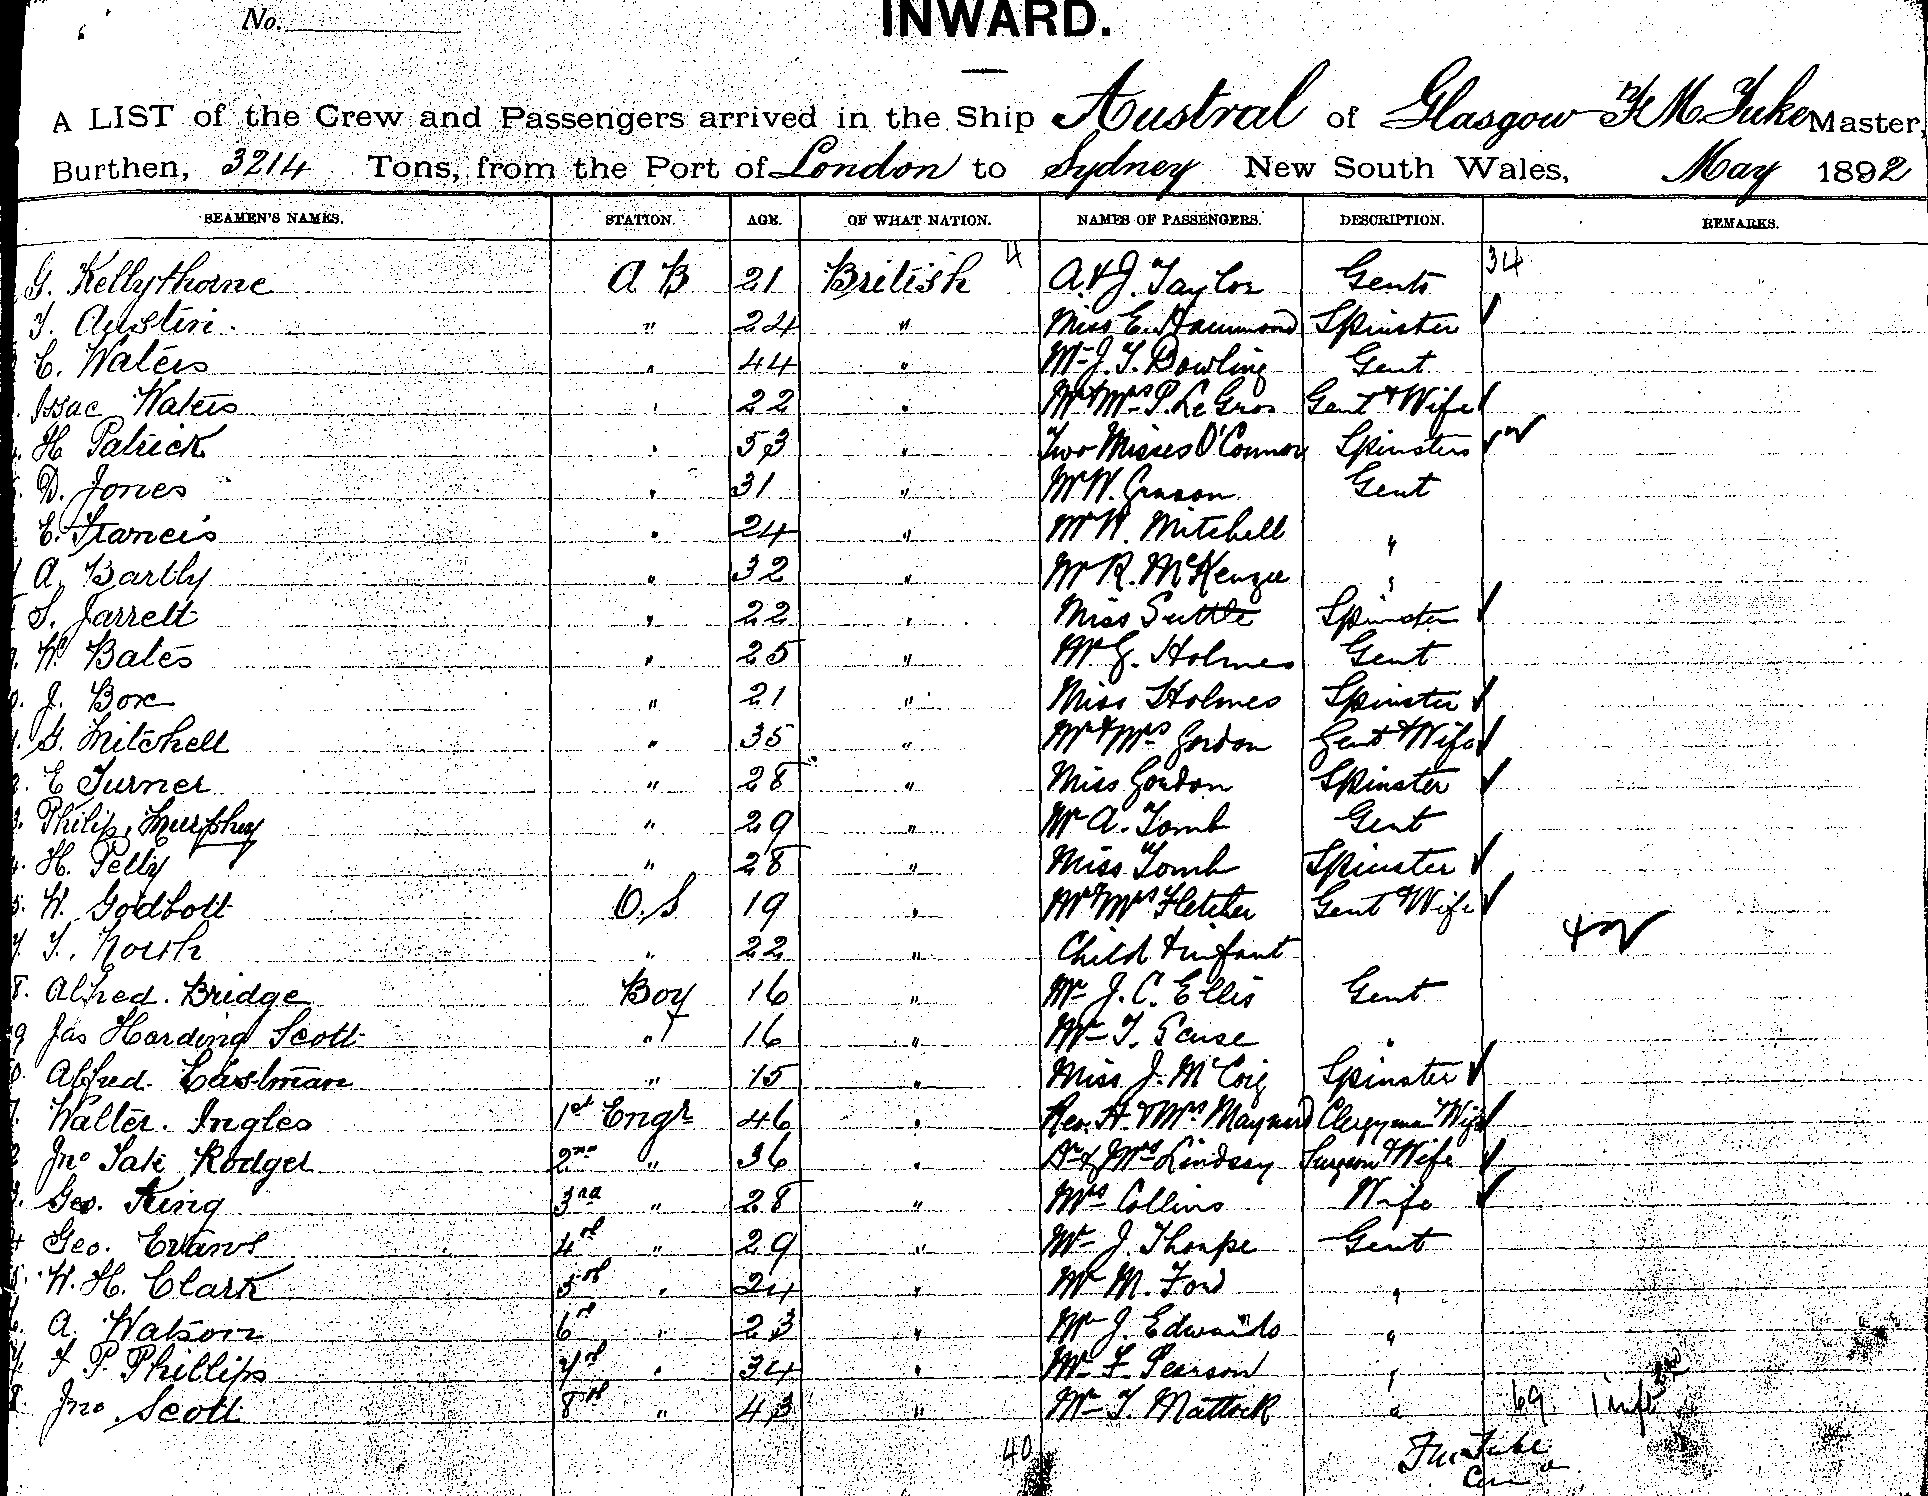 No.
INWARD.
A LIST of the Crew and Passengers arrived in the Ship Austral of Glasgow Master,
Burthen, 3214 Tons, from the Port of London to Sydney New South Wales, May 1892
SEAMEN'S NAMES. STATION. AGE. OF WHAT NATION. NAMES OF PASSENGERS. DESCRIPTION. REMARKS.
G. Kellythorne A B 21 British 4 A. & J. Taylor Gents 34
Austin " 24 " Miss E. Hammond Spinster
C. Waters " 44 " Mr J. T. Bowling Gent
Issac Waters " 22 " Mr & Mrs P. Le Gros Gent & Wife
H Patrick " 53 " Two Misses O'Connor Spinsters
D. Jones " 31 " Mr W. Gent
E. Francis " 24 " Mr W. Mitchell "
A. Bartly " 32 " Mr R. McKenzie "
S. Jarrett " 22 " Miss Suttle Spinster
W. Bales " 25 " Mr G. Holmes Gent
J. Box " 21 " Miss Holmes Spinster
G. Mitchell " 35 " Mr & Mrs Gordon Gent & Wife
E Turner " 28 " Miss Gordon Spinster
Philip Murphy " 29 " Mr A. Tomb Gent
H. Pelly " 28 " Miss Tomb Spinster
W. Godbolt O.S 19 " Mr & Mrs Fletcher Gent & Wife
T. North " 22 " Child & infant
Alfred. Bridge Boy 16 " Mr J. C. Ellis Gent
Jas Harding Scott " 16 " Mr T. "
Alfred. Eastman " 15 " Miss J. McCoig Spinster
Walter. Ingles 1st Engr 46 " Rev. H. & Mrs Maynard Clergyman & Wife
Jno Tate Rodger 2nd " 36 " Dr & Mrs Lindsay Surgeon & Wife
Geo. King 3rd " 28 " Mrs Collins Wife
Geo. Evans 4th " 29 " Mr J. Thorpe Gent
W. H. Clark 5th " 24 " Mr M. Ford "
A. Watson 6th " 23 " Mr J. Edwards "
P. Phillips 7th " 34 " Mr F. Pearson "
Jno Scott 8th " 43 " Mr T. Mattock " 69 1 inft
40